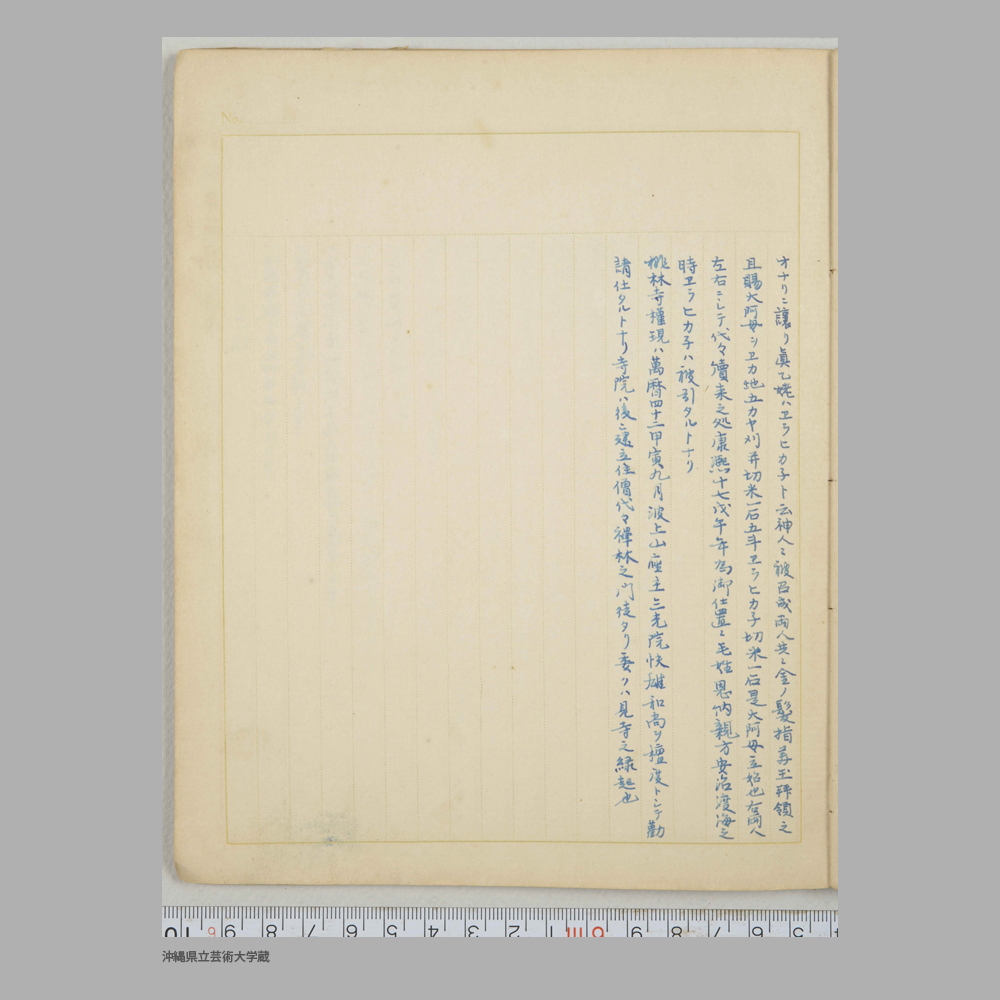 オナリニ讓リ眞乙姥ハヱラヒカ子ト云神人ニ被召成両人共ニ金ノ髪指并玉拝領之
且賜大阿母シヱカ地五カヤ刈并切米一石五斗ヱラヒカ子切米一石是大阿母立始也右両人
左右ニシテ代々續来之処康熙十七戊午年為御仕置ニ毛姓恩納親方安治渡海之
時ヱラヒカ子ハ被引タルトナリ
桃林寺權現ハ萬暦四十二甲寅九月波上山座主三光院快雄和尚ヲ檀度トシテ勸
請仕タルトナリ寺院ハ後ニ建立住僧代々禪林之門徒タリ委クハ見寺之緑起也
沖縄県立芸術大学蔵
10 9 8 7 6 5 4 3 2 1 6m 9 8 7 6 5 4